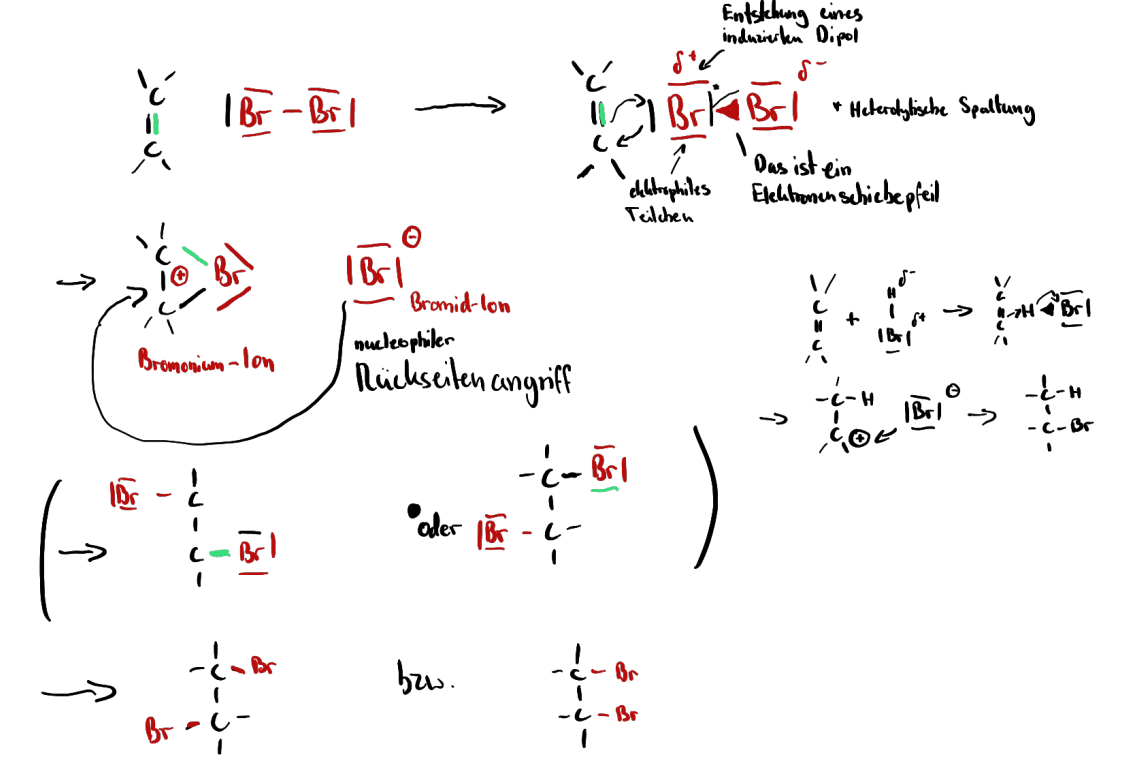 Entstehung eines
induzierten Dipol
C C |Br – Br| → C C |Br| δ+ Br| δ-
* Heterolytische Spaltung
elektrophiles
Teilchen
Das ist ein
Elektronenschiebepfeil
→ C C ⊕ Br |Br| ⊖
Bromonium-Ion
Bromid-Ion
nucleophiler
Rückseitenangriff
C C + H δ- |Br| δ+ → C C H Br|
→ C – H C ⊕ |Br| ⊖ → C – H C – Br
( → |Br – C C – Br| oder C – Br| |Br – C )
→ C – Br Br – C bzw. C – Br C – Br